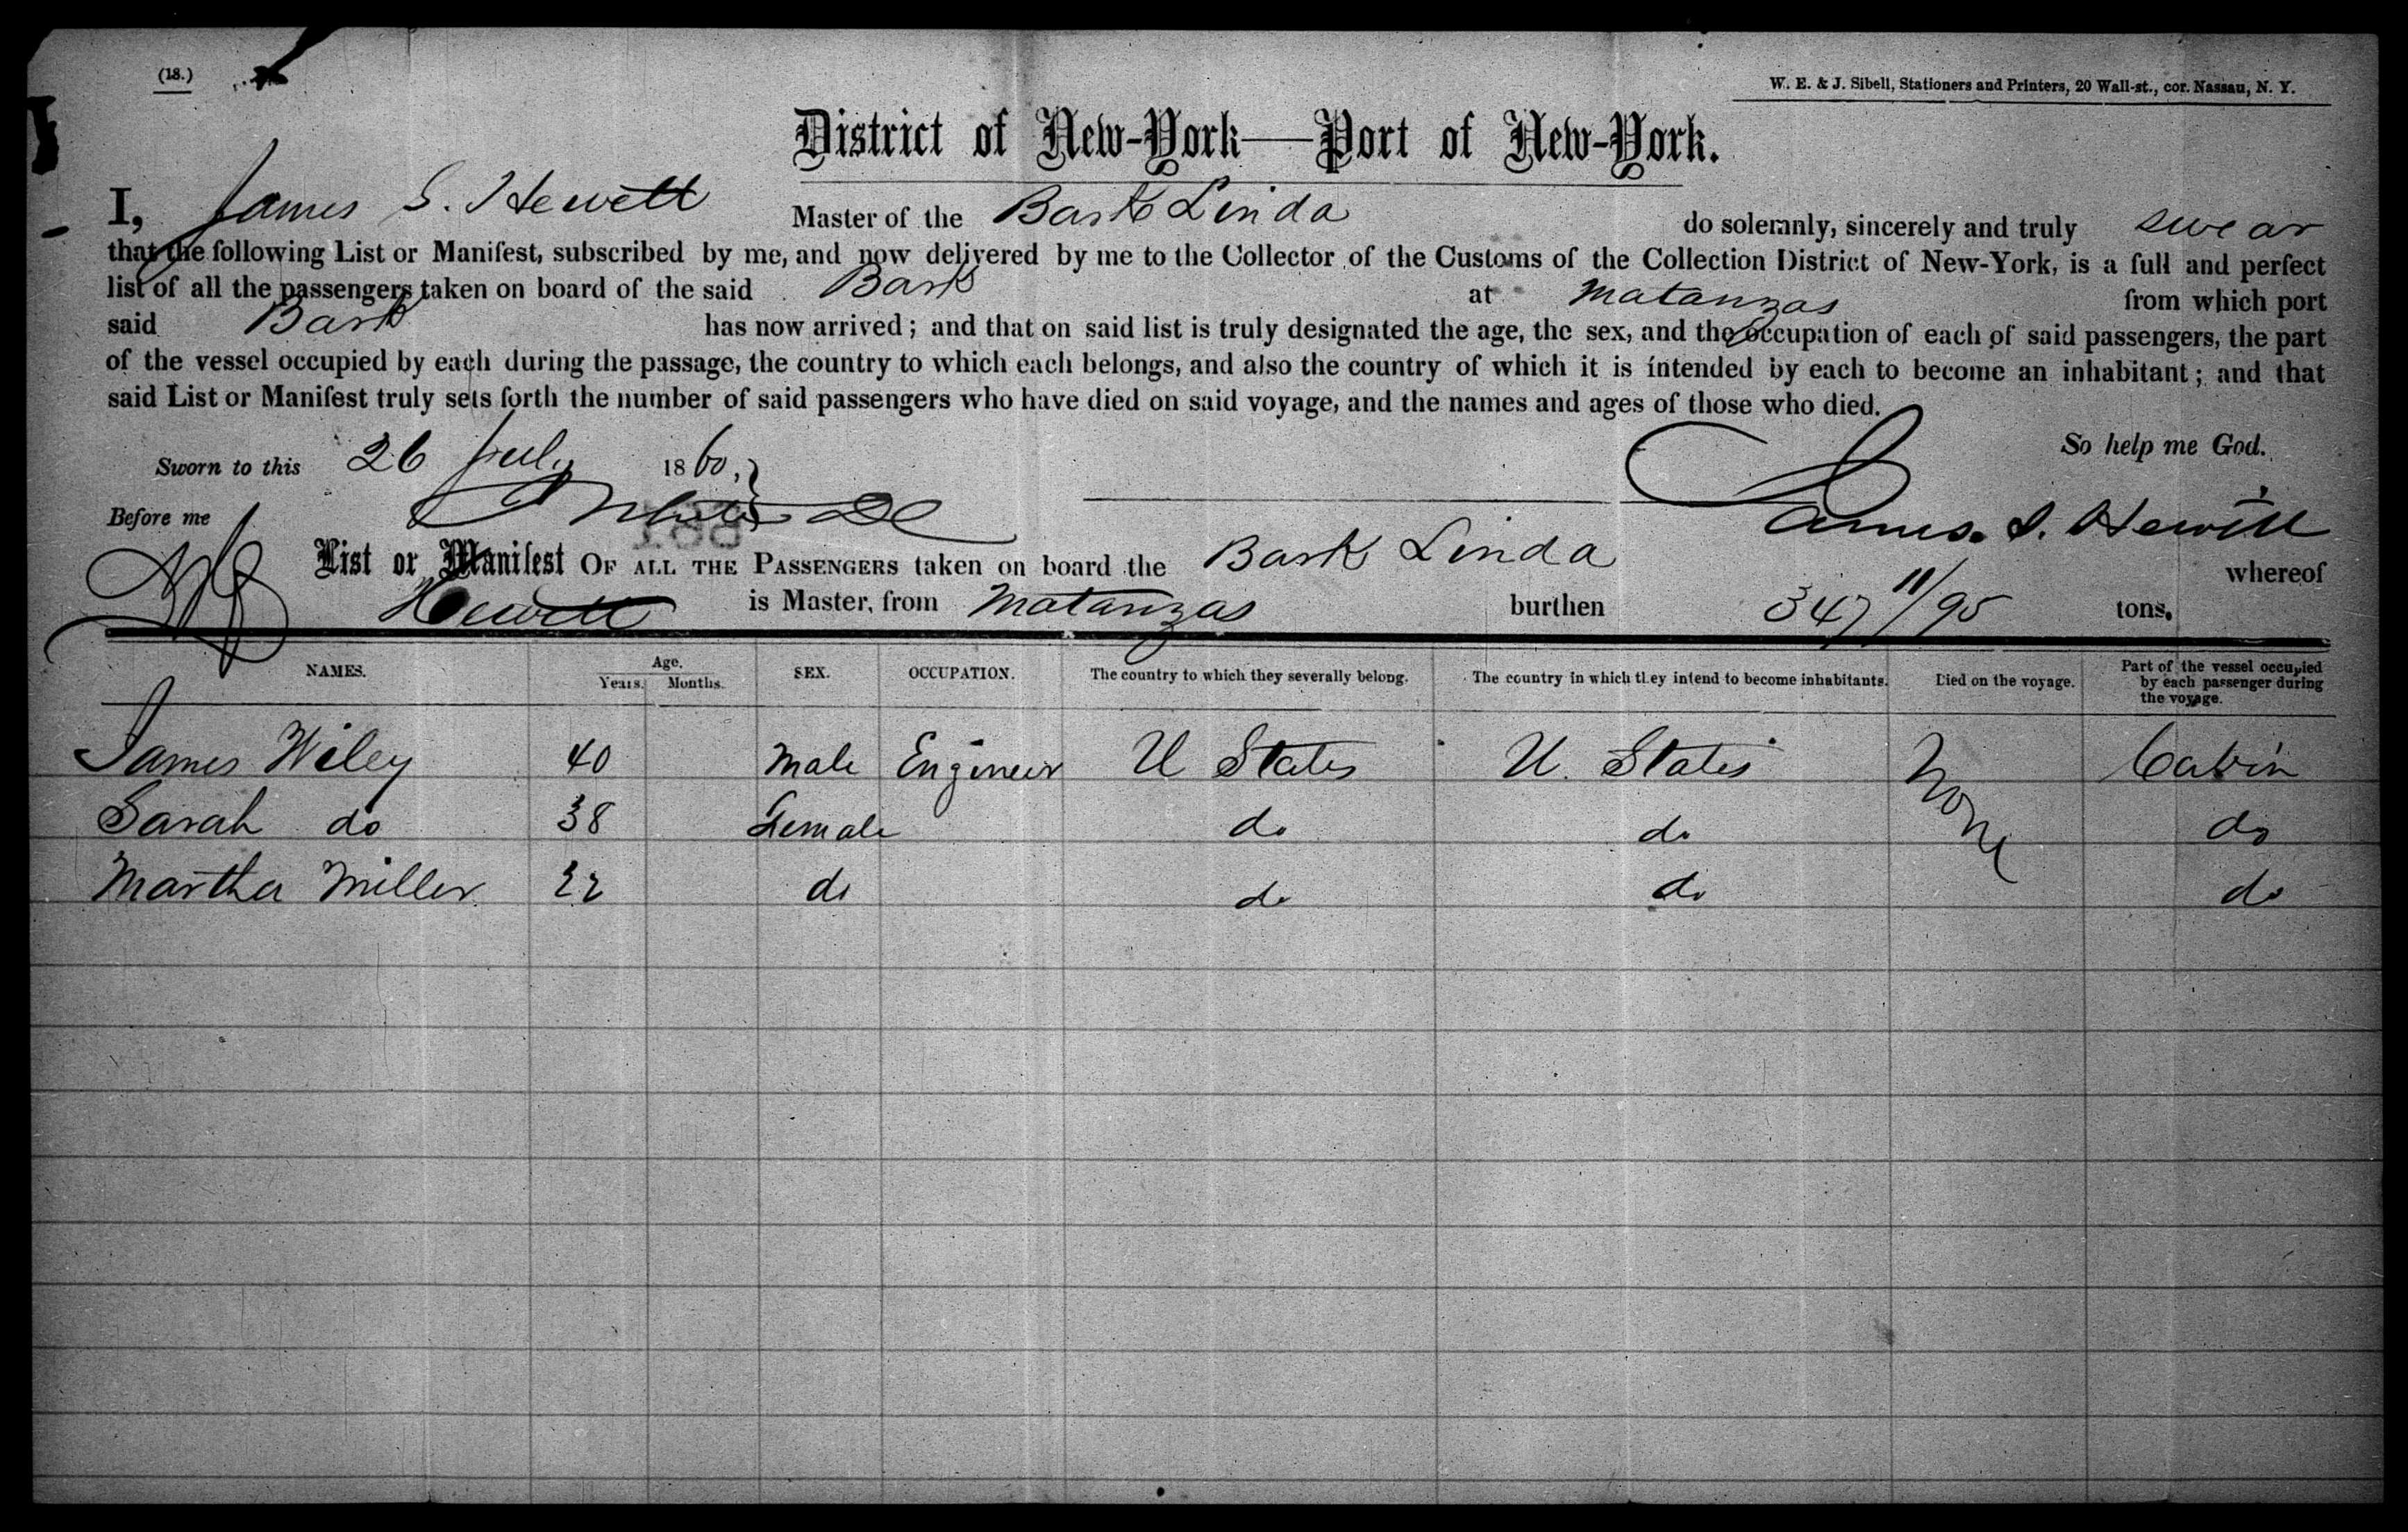 (18.)
W. E. & J. Sibell, Stationers and Printers, 20 Wall-st., cor. Nassau, N. Y.
District of New-York—Port of New-York.
I, James S. Hewett Master of the Bark Linda do solemnly, sincerely and truly swear
that the following List or Manifest, subscribed by me, and now delivered by me to the Collector of the Customs of the Collection District of New-York, is a full and perfect
list of all the passengers taken on board of the said Bark at Matanzas from which port
said Bark has now arrived; and that on said list is truly designated the age, the sex, and the occupation of each of said passengers, the part
of the vessel occupied by each during the passage, the country to which each belongs, and also the country of which it is intended by each to become an inhabitant; and that
said List or Manifest truly sets forth the number of said passengers who have died on said voyage, and the names and ages of those who died.
So help me God.
Sworn to this 26 July 1860,
Before me
James. S. Hewett
List or Manifest OF ALL THE PASSENGERS taken on board the Bark Linda whereof
Hewett is Master, from Matanzas burthen 347 11/95 tons.
NAMES. Age. Years. Months. SEX. OCCUPATION. The country to which they severally belong. The country in which they intend to become inhabitants. Died on the voyage. Part of the vessel occupied by each passenger during the voyage.
James Wiley 40 Male Engineer U States U. States None Cabin
Sarah do 38 Female do do do
Martha Miller 22 do do do do